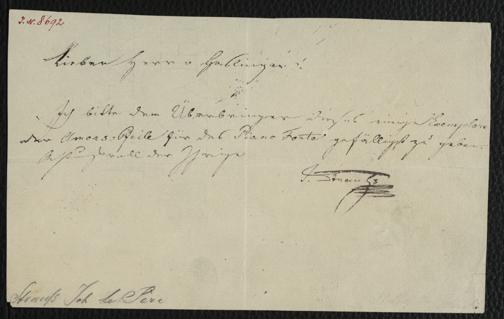 J.N. 8692
Lieber Herr v Haslinger!
Ich bitte dem Überbringer dieses einige Exemplare
der Amors-Pfeile für das Piano Forte gefälligst zu geben.
der Ihrige
J. Strauß
Strauß Joh le Père